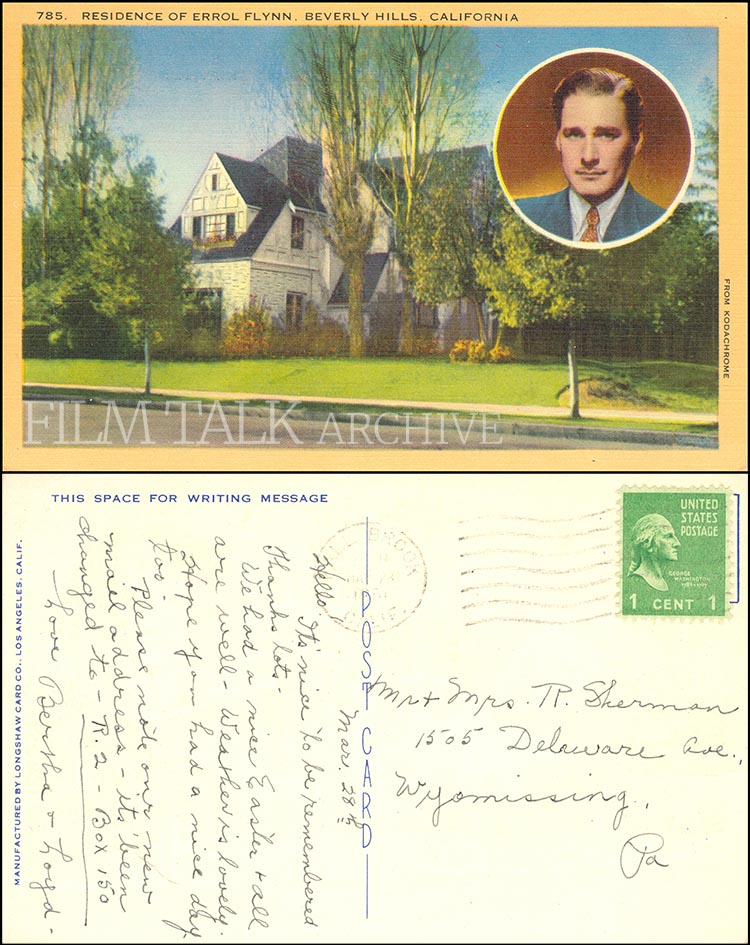 785. RESIDENCE OF ERROL FLYNN, BEVERLY HILLS, CALIFORNIA
FROM KODACHROME
FILM TALK ARCHIVE
THIS SPACE FOR WRITING MESSAGE
MANUFACTURED BY LONGSHAW CARD CO., LOS ANGELES, CALIF.
POST CARD
UNITED
STATES
POSTAGE
GEORGE
WASHINGTON
1 CENT 1
Mar. 28th
Hello. It's nice to be remembered
Thanks lots -
We had a nice Easter & all
are well - Weather is lovely.
Hope you had a nice day
too -
Please note our new
mail address - it's been
changed to - R. 2 - Box 150
Love Bertha & Loyd -
Mr & Mrs. R. Sherman
1505 Delaware Ave.,
Wyomissing,
Pa